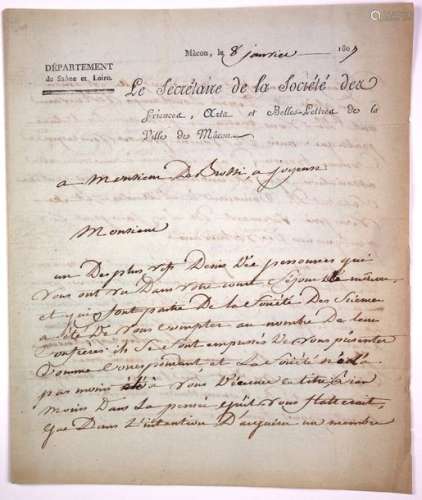 Mâcon, le 8 janvier 180
DÉPARTEMENT
de Saône et Loire.
Le Secrétaire de la Société des
Sciences, Arts et Belles-Lettres de la
Ville de Mâcon
a Monsieur De Brosse, a Joyeuse
Monsieur
un Des plus vifs Desirs Des personnes qui
vous ont vu Dans votre court Séjour à mâcon,
et qui font partie De la Société Des Sciences
a été De vous compter au nombre De leurs
confrères ils Se Sont empressés De vous présenter
comme Correspondant et La Société n'a
pas moins été à vous Décerner ce titre
moins Dans La pensée qu'il vous flatterait,
que Dans L'intention D'acquérir un membre